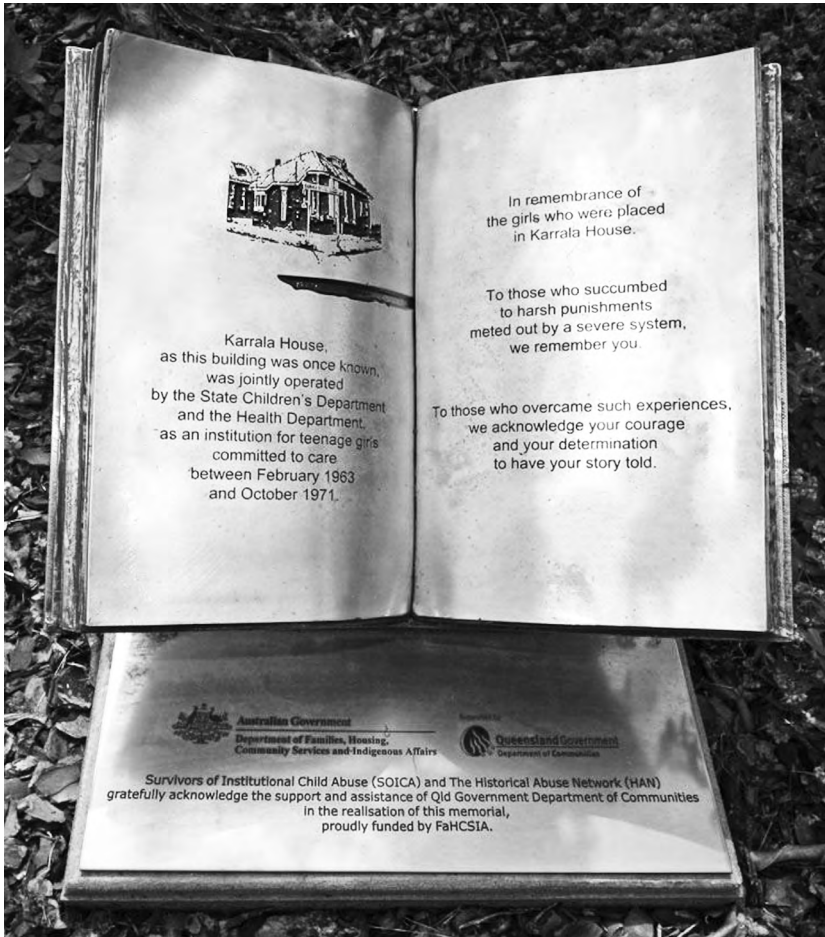 Karrala House,
as this building was once known,
was jointly operated
by the State Children's Department
and the Health Department,
as an institution for teenage girls
committed to care
between February 1963
and October 1971.
In remembrance of
the girls who were placed
in Karrala House.
To those who succumbed
to harsh punishments
meted out by a severe system,
we remember you.
To those who overcame such experiences,
we acknowledge your courage
and your determination
to have your story told.
Australian Government
Department of Families, Housing,
Community Services and Indigenous Affairs
Supported by
Queensland Government
Department of Communities
Survivors of Institutional Child Abuse (SOICA) and The Historical Abuse Network (HAN)
gratefully acknowledge the support and assistance of Qld Government Department of Communities
in the realisation of this memorial,
proudly funded by FaHCSIA.